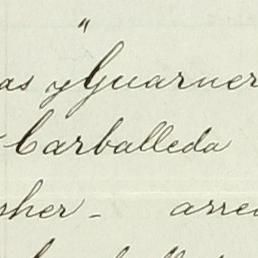 "
as y Guarner
Carballeda
sher - arre